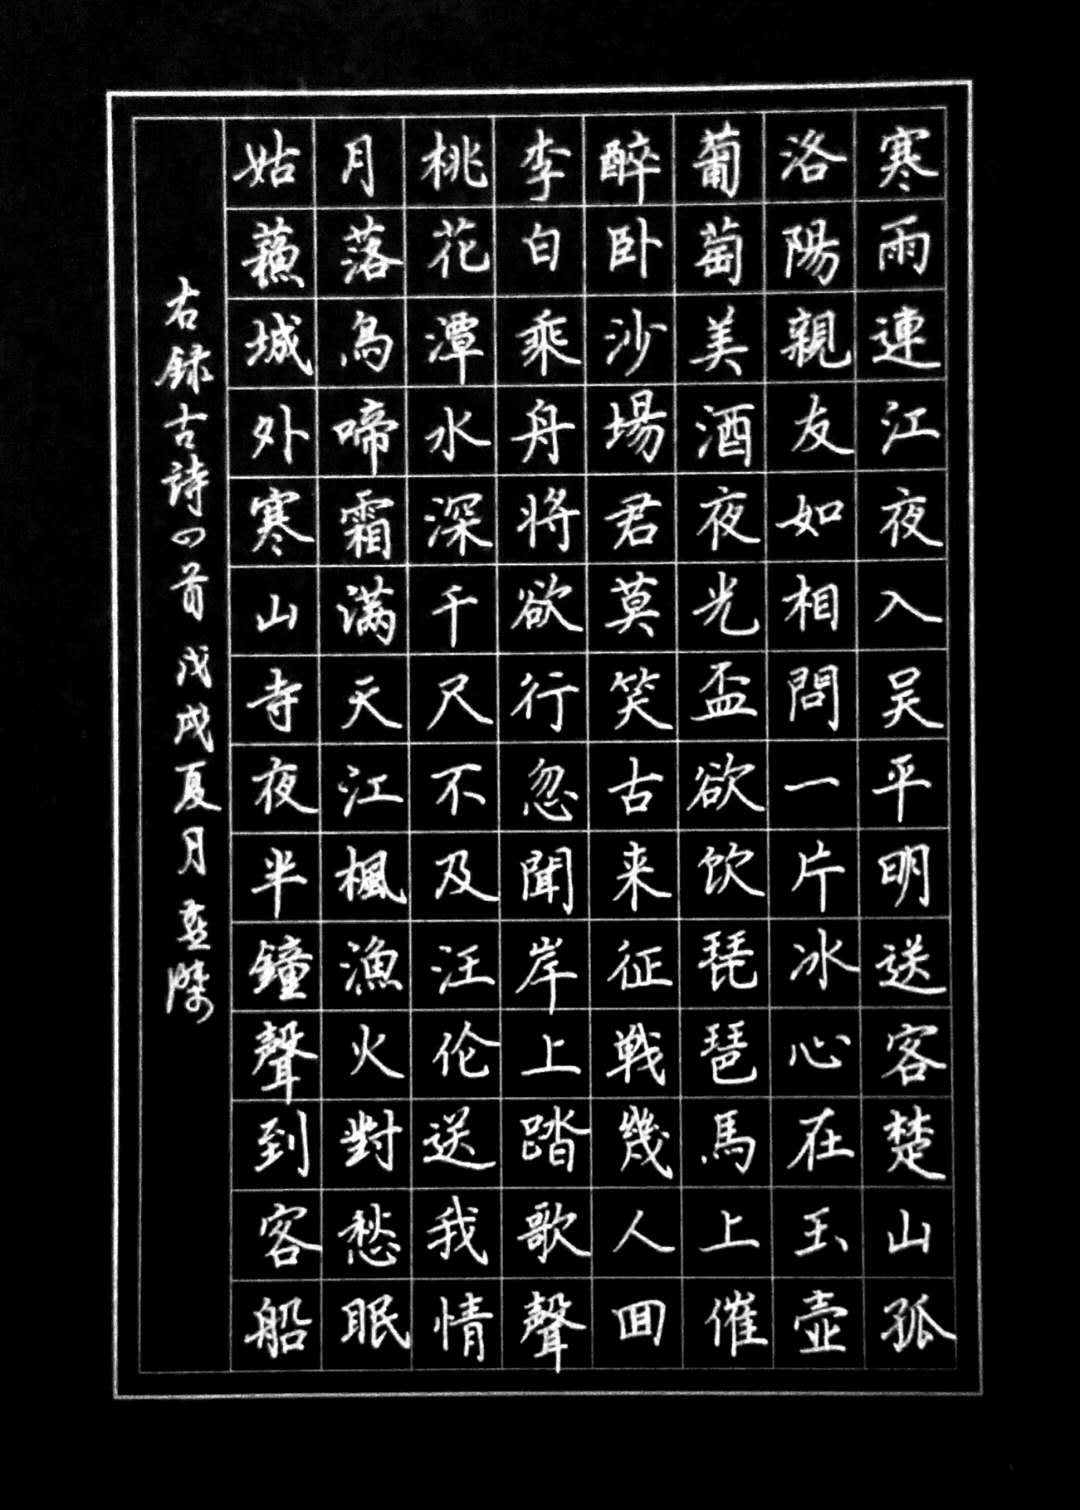 寒雨連江夜入吴平明送客楚山孤
洛陽親友如相問一片冰心在玉壺
葡萄美酒夜光盃欲飲琵琶馬上催
醉卧沙場君莫笑古来征戰幾人回
李白乘舟将欲行忽聞岸上踏歌聲
桃花潭水深千尺不及汪伦送我情
月落烏啼霜满天江楓漁火對愁眠
姑蘇城外寒山寺夜半鐘聲到客船
右録古詩四首戊戌夏月